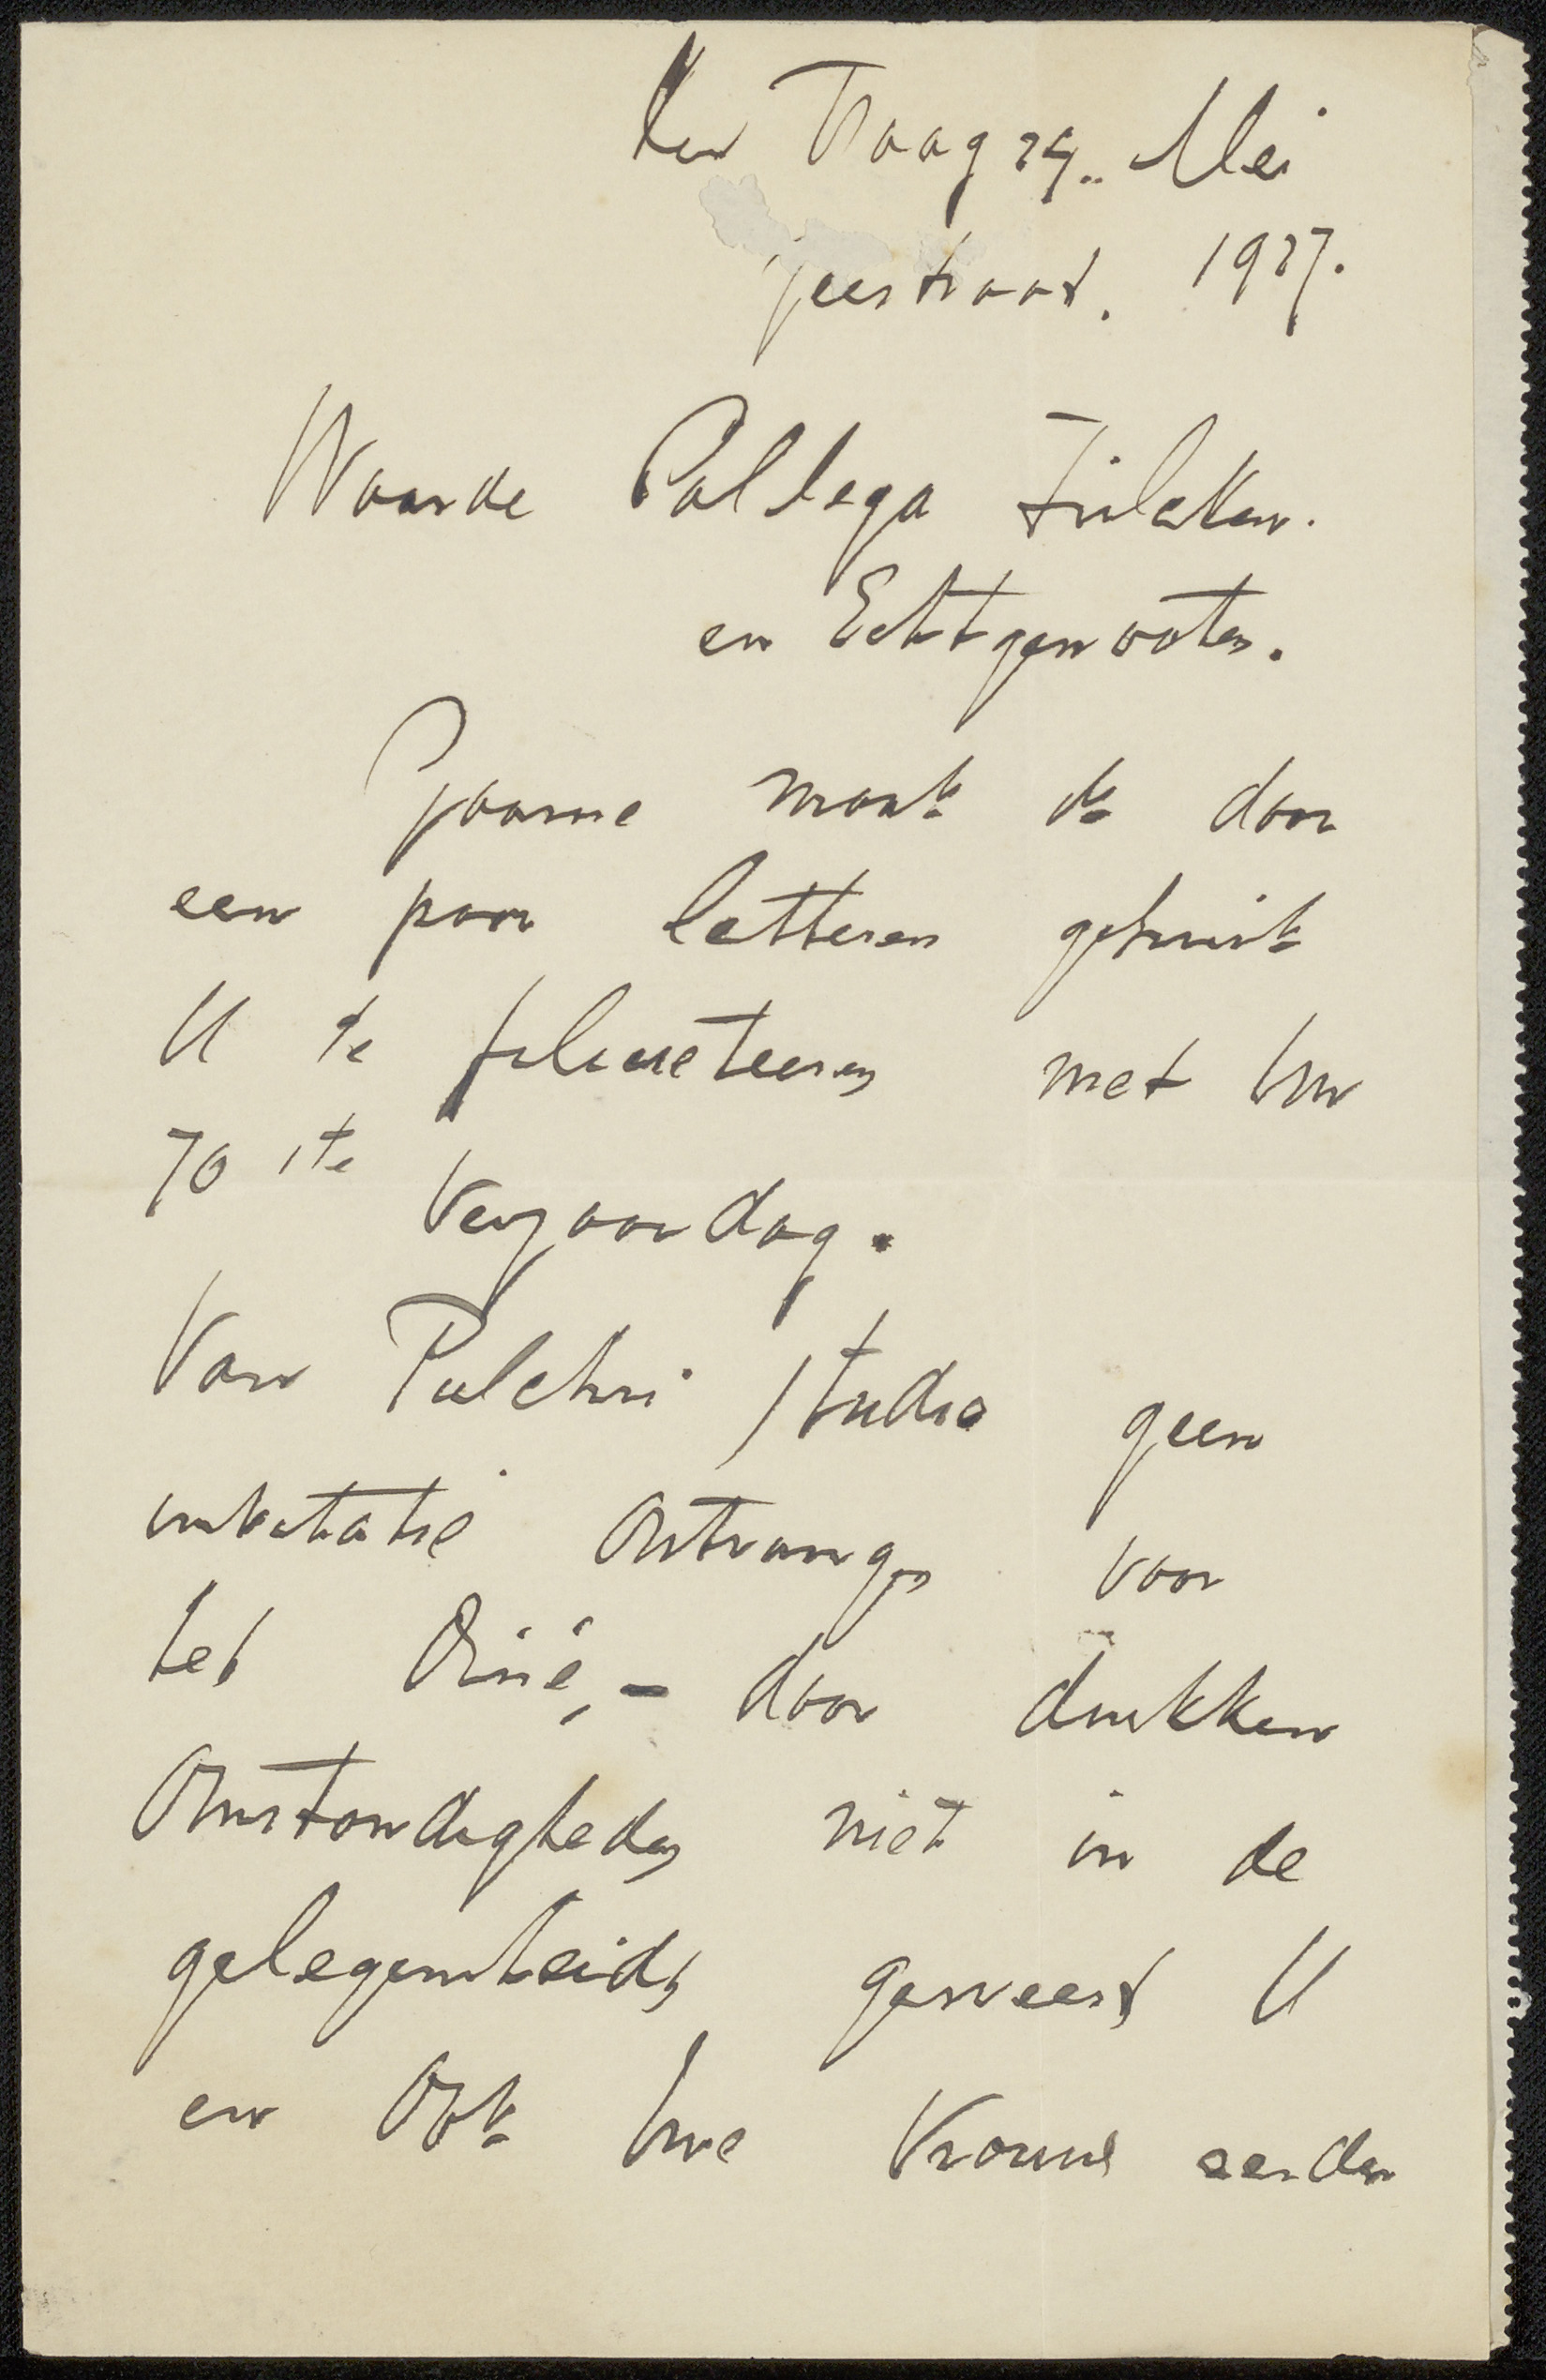 den Haag 24.. Mei
geestraat. 1927.
Waarde Collega Zilcken.
en Echtgenoote.
Gaarne maak ik door
een paar letteren gebruik
U te feliciteeren met Uw
70 ste Verjaardag.
Van Pulchri Studio geen
invitatie ontvangen voor
het Diné, - door drukken
omstandigheden niet in de
gelegenheid geweest U
en ook Uwe Vrouw eerder